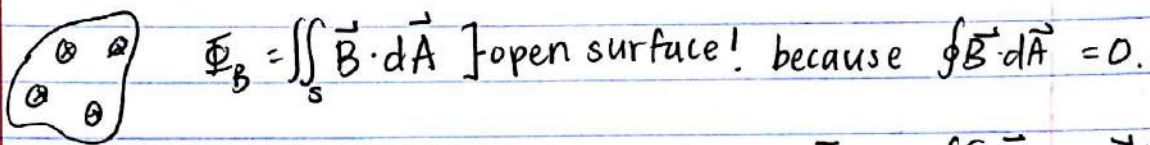 Φ_B = ∬_S B⃗ · dA⃗ ] open surface! because ∮B⃗·dA⃗ = 0.